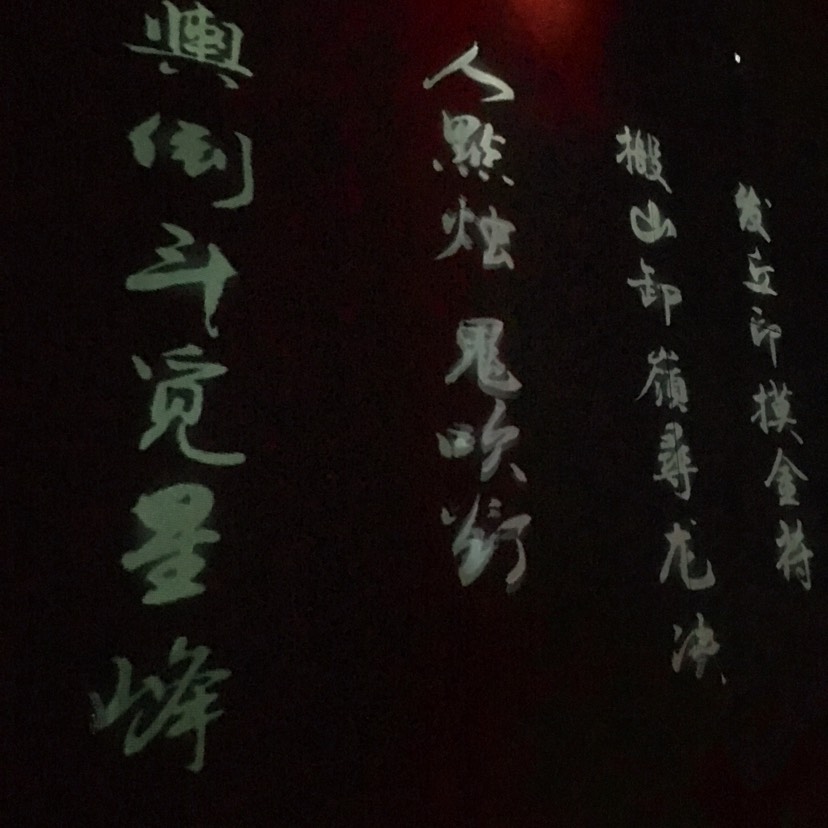 发丘印摸金符
搬山卸嶺尋龙決
人點烛 鬼吹灯
輿倒斗觅星峰